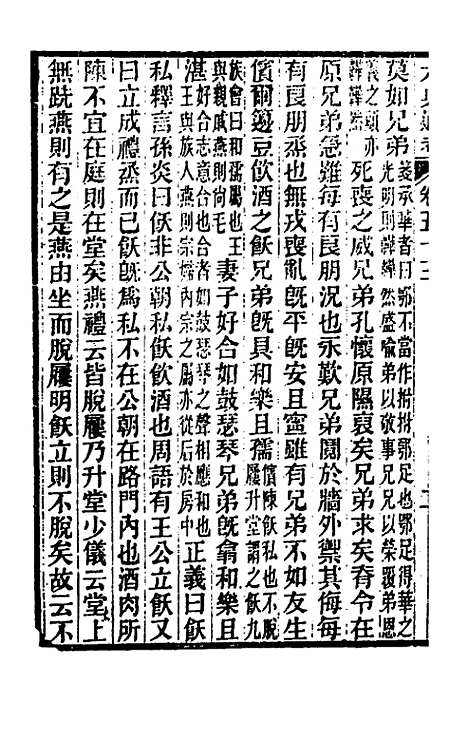 莫如兄弟 箋承華者曰鄂不當作拊拊鄂足也鄂足得華之
光明則韡韡然盛喻弟以敬事兄兄以榮覆弟恩
義之顯亦韡韡然 死喪之威兄弟孔懷原隰裒矣兄弟求矣脊令在
原兄弟急難每有良朋況也永歎兄弟鬩於牆外禦其侮每
有良朋烝也無戎喪亂旣平旣安且寧雖有兄弟不如友生
儐爾籩豆飮酒之飫兄弟旣具和樂且孺 儐陳飫私也不脫
屨升堂謂之飫九
族會曰和孺屬也王與親戚燕則尚毛 妻子好合如鼓瑟琴兄弟旣翕和樂且
湛 好合志意合也合者如鼓瑟琴之聲相應和也
王與族人燕則宗婦內宗之屬亦從后於房中 正義曰飫
私釋言孫炎曰飫非公朝私飫飮酒也周語有王公立飫又
曰立成禮烝而已飫旣爲私不在公朝在路門內也酒肉所
陳不宜在庭則在堂矣燕禮云皆脫屨乃升堂少儀云堂上
無跣燕則有之是燕由坐而脫屨明飫立則不脫矣故云不